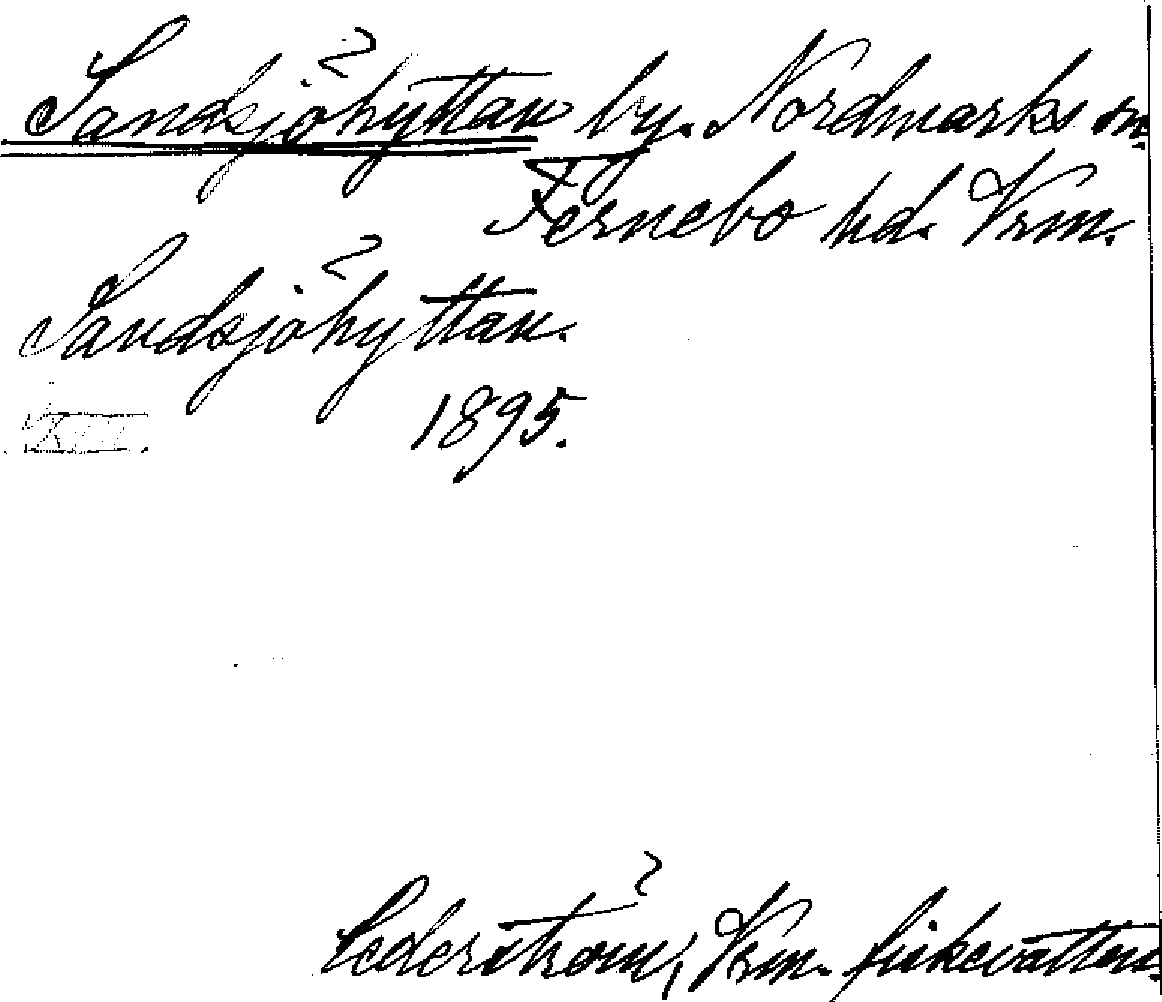 Sandsjöhyttan by. Nordmarks sn.
Fernebo hd. Vrm.
Sandsjöhyttan.
1895.
Cederström, Vrm. fiskevatten.